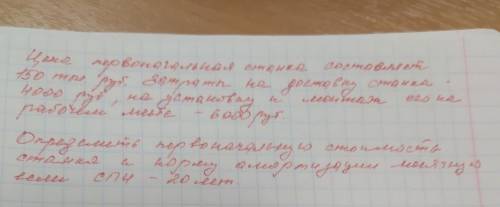 Цена первоначальная станка составляет
150 тыс. руб. Затраты на доставку станка -
4000 руб, на установку и монтаж его на
рабочем месте - 6000 руб.
Определить первоначальную стоимость
станка и норму амортизации месячную
если СПИ - 20 лет.